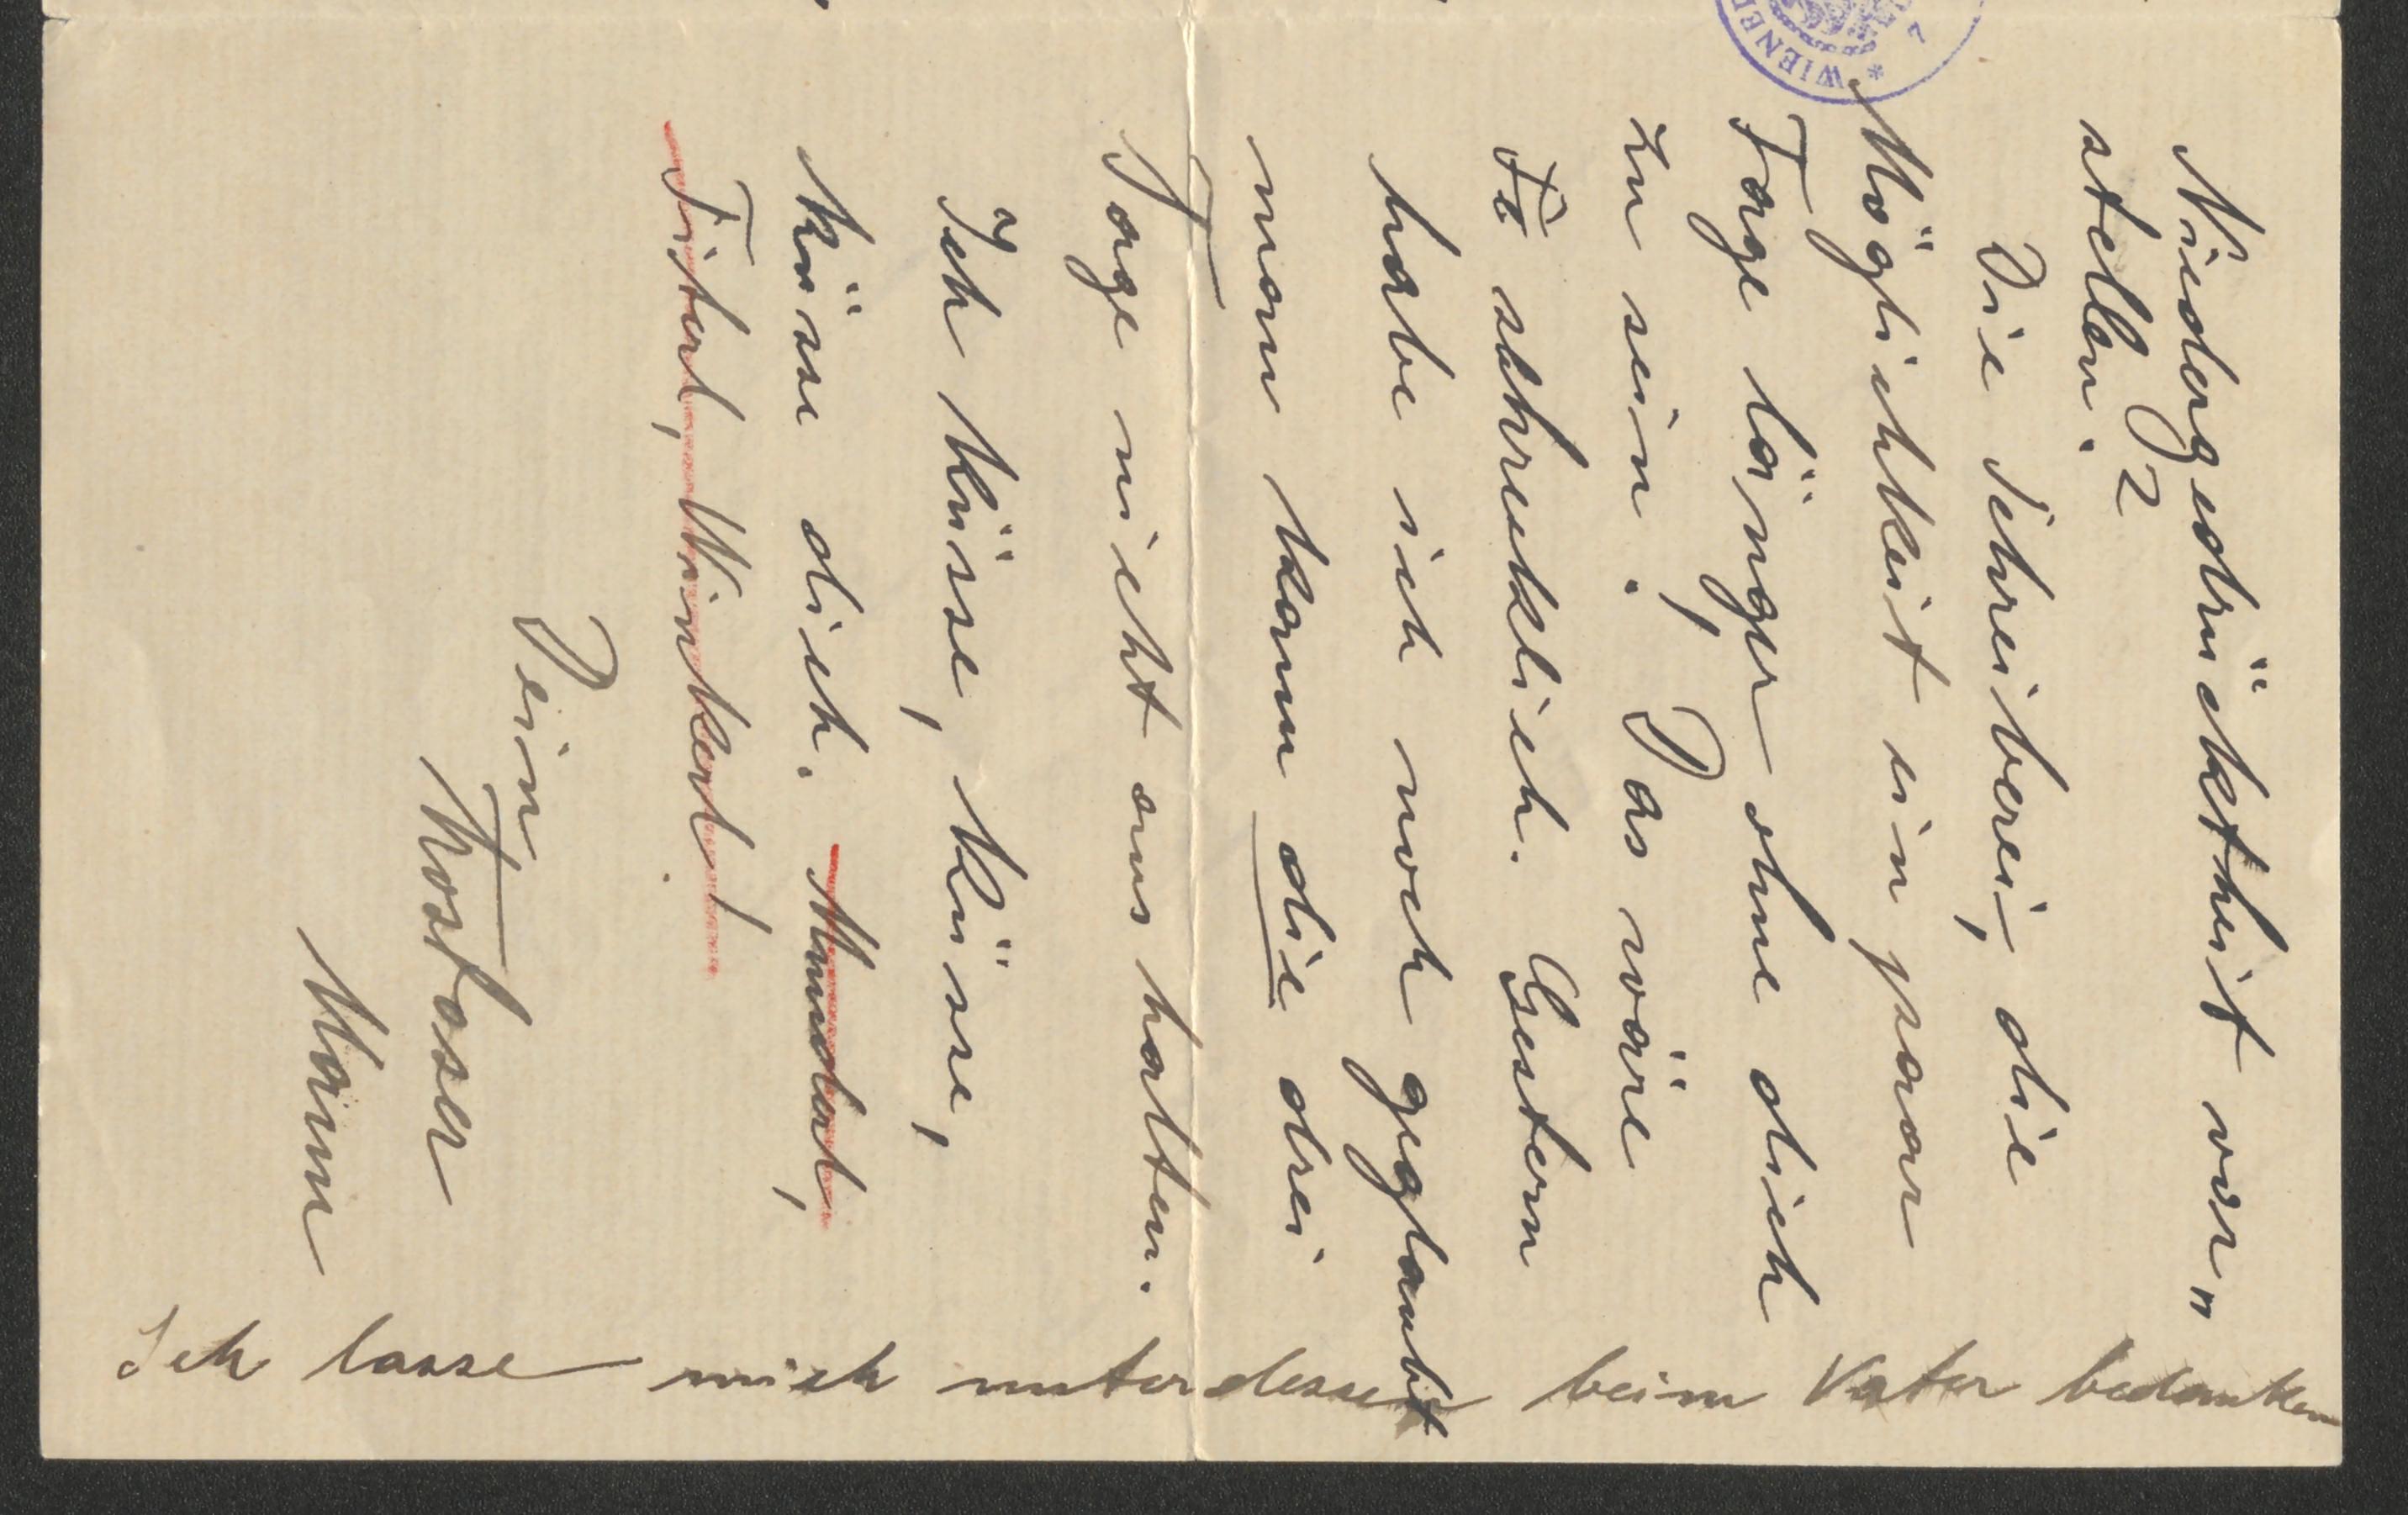 Niedergedrücktheit vor„
stellen.
Die Schreiberei, die
Möglichkeit ein paar
Tage länger ohne dich
zu sein! Das wäre
zu schrecklich. Gestern
habe ich noch geglaubt
man kann die drei
Tage nicht aushalten.
Ich küsse, küsse,
küsse dich. Munderl,
Fisterl, Winkerl!
Dein
Mann
Ich lasse mich unterdessen beim Vater bedanken
WIENER